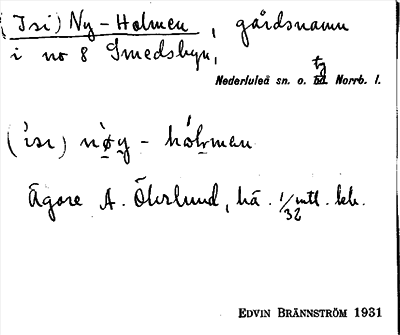 (Isi) Ny-Holmen, gårdsnamn
i no 8 Smedsbyn,
Nederluleå sn. o. tg Norrb. l.
(ìsi) nø̀y - hólman
Ägare A. Öhrlund, hä. 1/32 mtl. kr.
EDVIN BRÄNNSTRÖM 1931